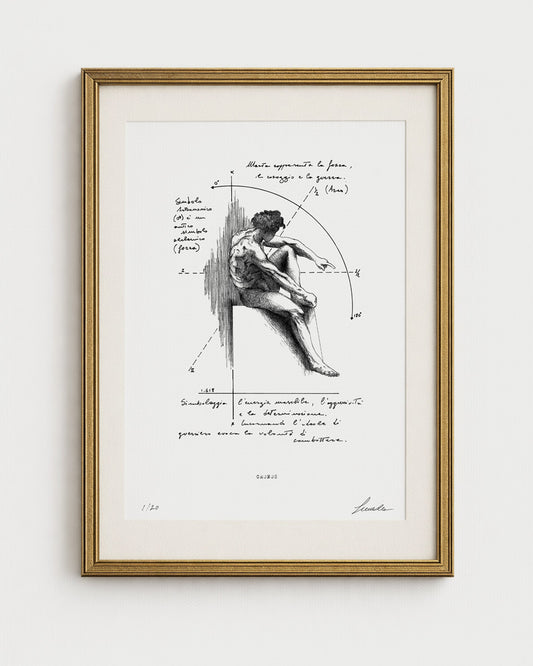 Marte rappresenta la forza,
il coraggio e la guerra.
(Ares)
0°
Simbolo
astronomico
(♂) è un
antico
simbolo
(forza)
180°
1.618
Simboleggia l'energia maschile, l'aggressività
e la determinazione.
Incarnando l'ideale di
guerriero evoca la volontà di
combattere.
1/20